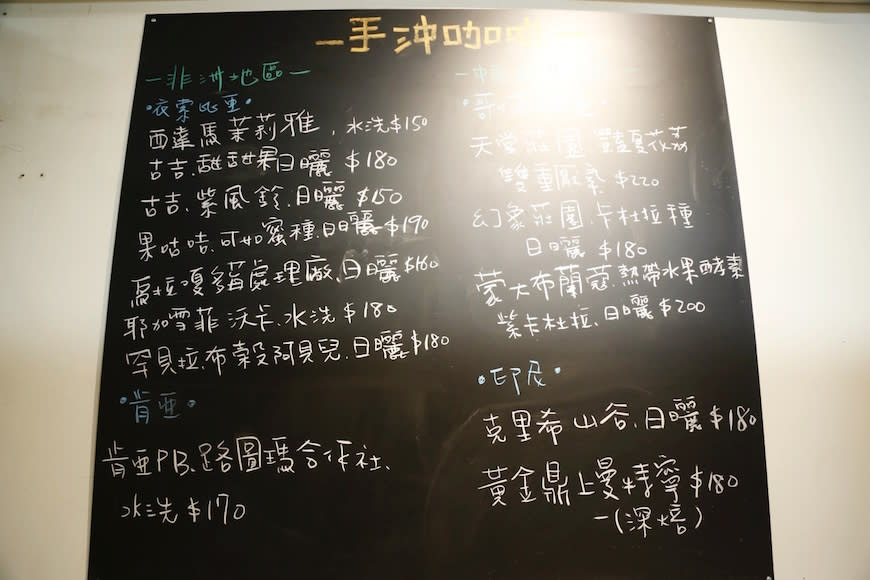 一手沖咖啡一
一非洲地區一
•衣索比亞•
西達馬茉莉雅，水洗$150
古吉、甜甜果日曬 $180
古吉、紫風鈴、日曬 $150
果咕咕、可如蜜種、日曬 $190
烏拉嘎 處理廠、日曬 $160
耶加雪菲沃卡、水洗 $180
罕貝拉、布穀阿貝兒、日曬 $180
•肯亞•
肯亞PB、路圖瑪合作社、
水洗 $170
天堂莊園
雙重厭氧 $220
幻象莊園、卡杜拉種
日曬 $180
蒙大布蘭蔻、熱帶水果酵素
紫卡杜拉、日曬 $200
•印尼•
克里希山谷、日曬 $180
黃金鼎上曼特寧 $180
－(深焙)